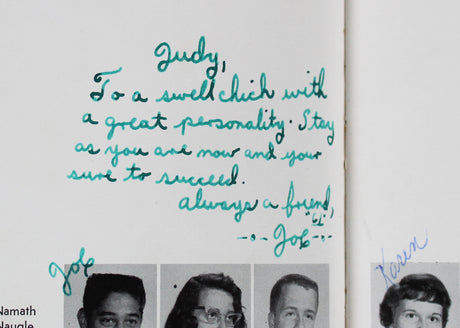 Judy,
To a swell chick with
a great personality. Stay
as you are now and your
sure to succeed.
always a friend,
"El"
-·- Joe -·-
Joe
Karen
Namath
Naugle